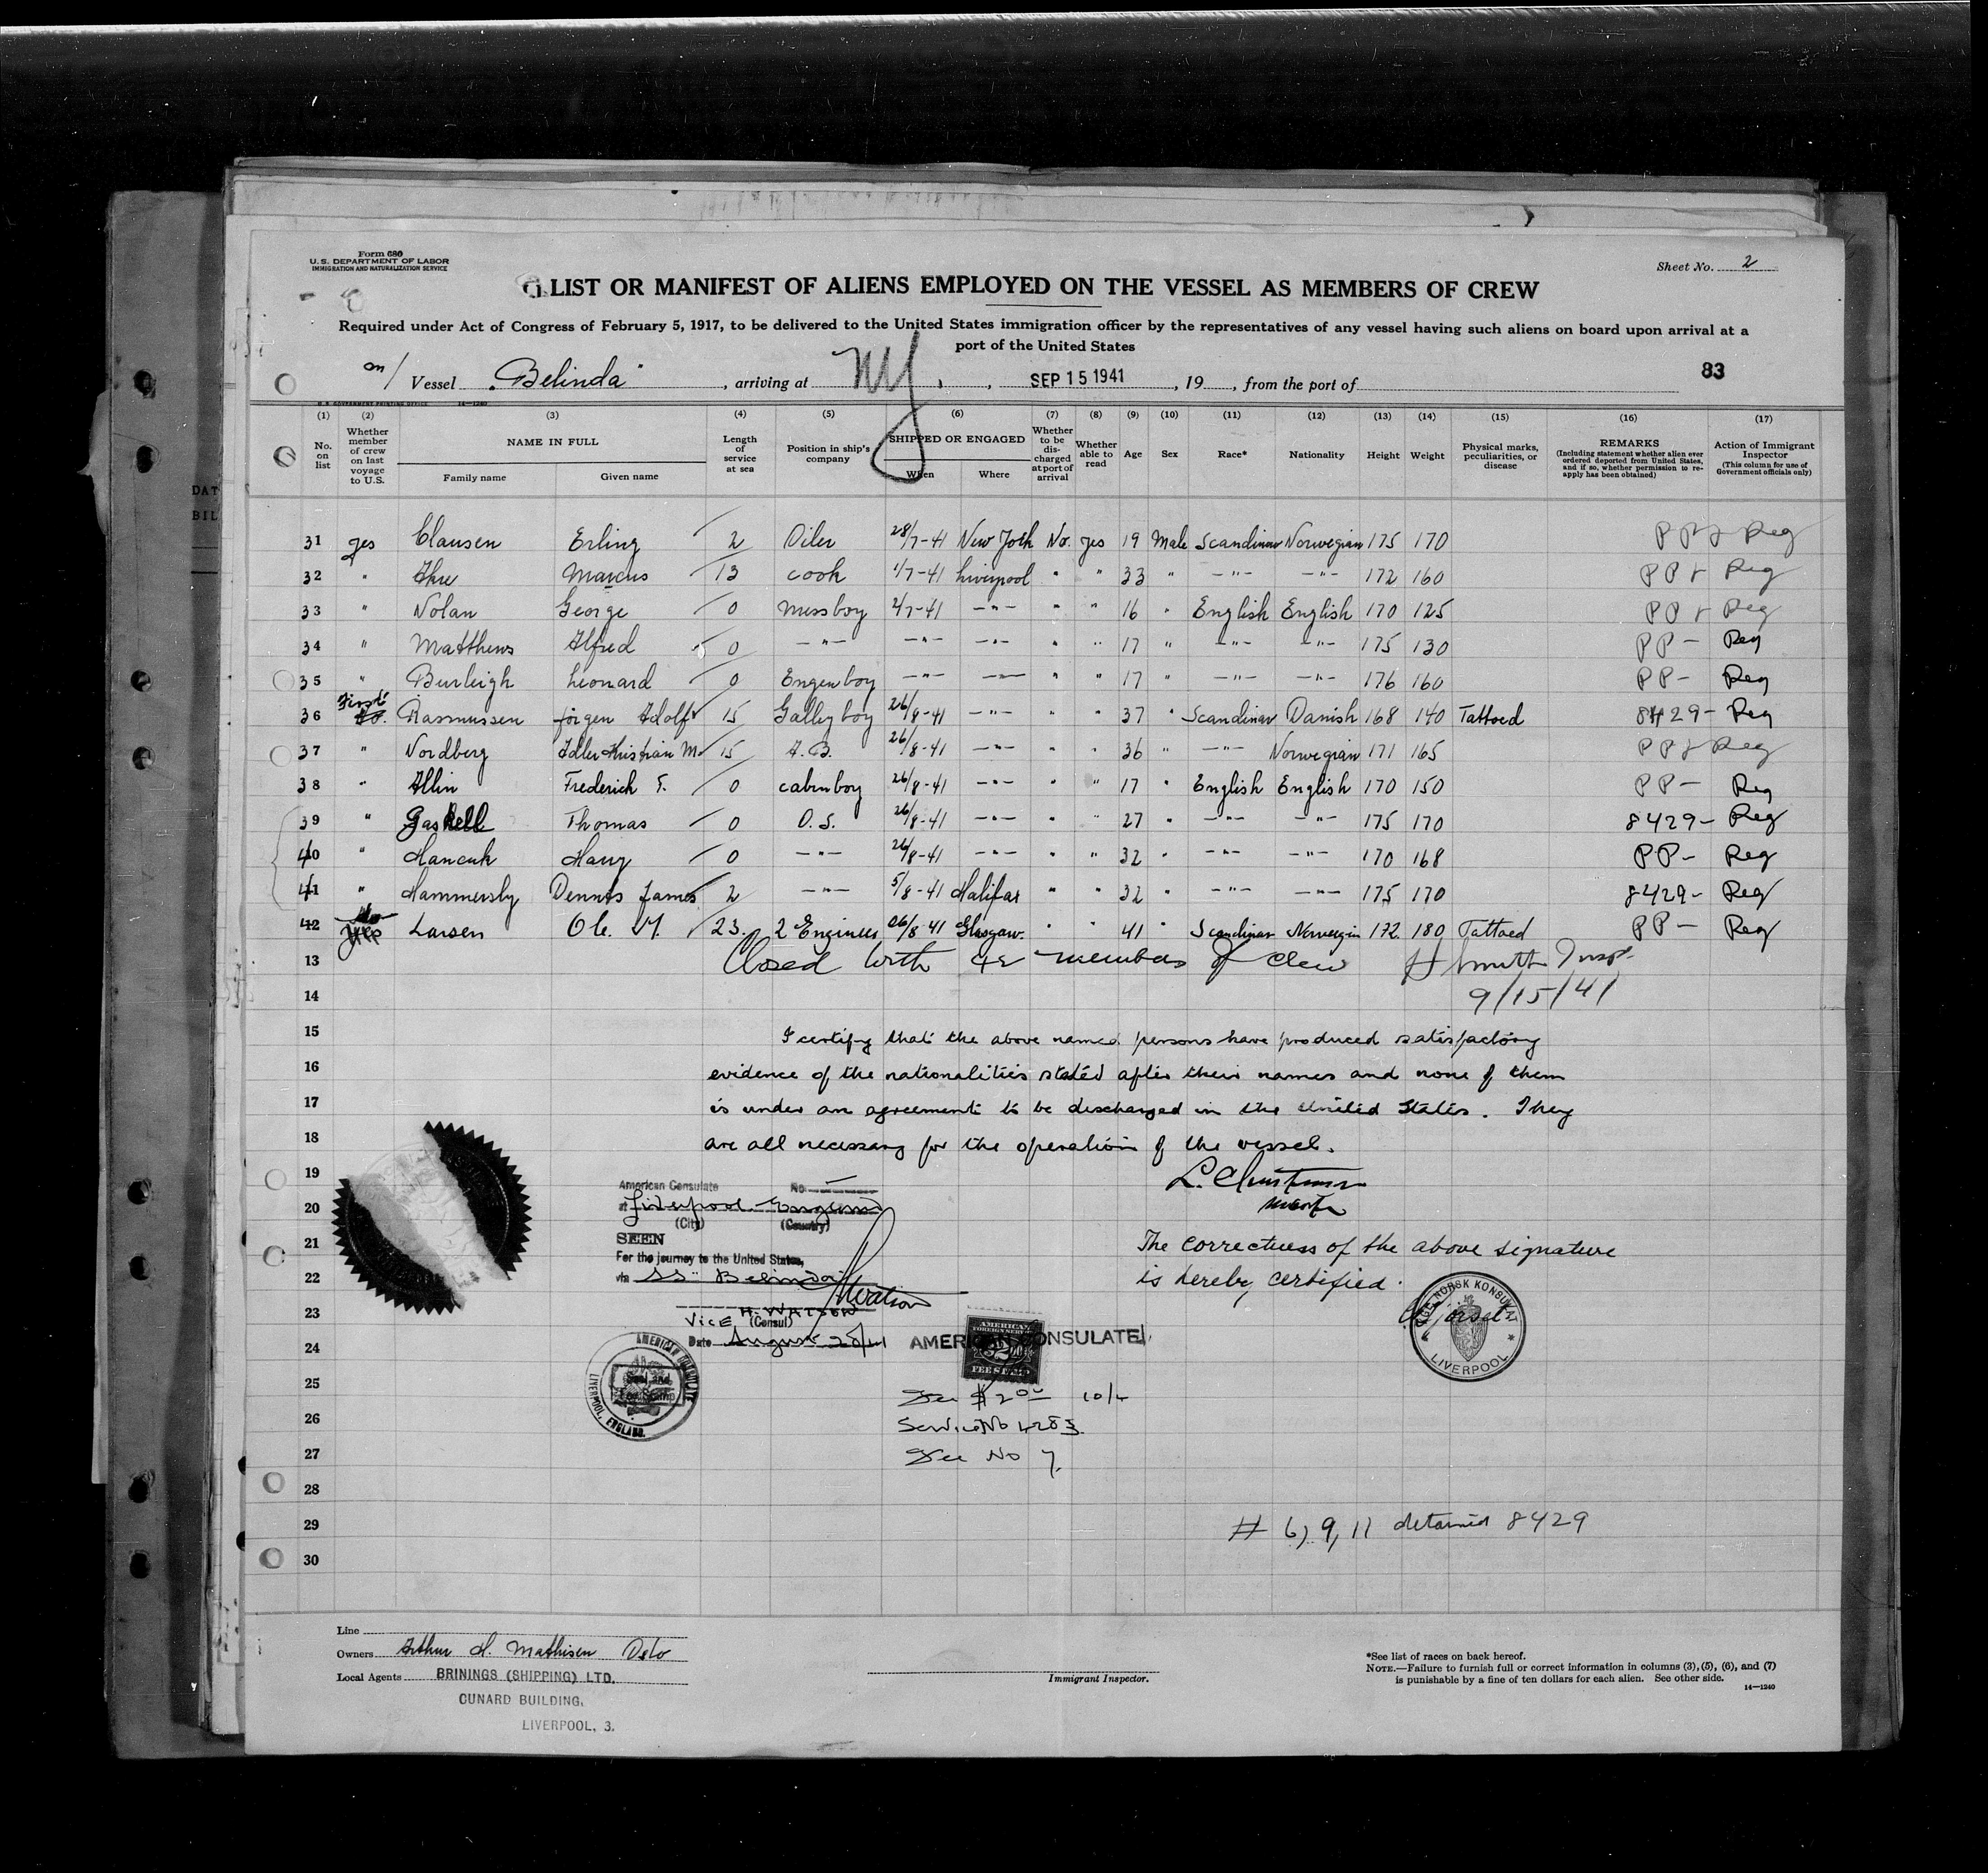 Form 680
U.S. DEPARTMENT OF LABOR
IMMIGRATION AND NATURALIZATION SERVICE
Sheet No. 2
LIST OR MANIFEST OF ALIENS EMPLOYED ON THE VESSEL AS MEMBERS OF CREW
Required under Act of Congress of February 5, 1917, to be delivered to the United States immigration officer by the representatives of any vessel having such aliens on board upon arrival at a
port of the United States
Vessel "Belinda", arriving at NY, SEP 15 1941, 19, from the port of
83
(1) (2) (3) (4) (5) (6) (7) (8) (9) (10) (11) (12) (13) (14) (15) (16) (17)
No. on list
Whether member of crew on last voyage to U.S.
NAME IN FULL
Family name
Given name
Length of service at sea
Position in ship's company
SHIPPED OR ENGAGED
When
Where
Whether to be discharged at port of arrival
Whether able to read
Age
Sex
Race*
Nationality
Height
Weight
Physical marks, peculiarities, or disease
REMARKS
(Including statement whether alien ever ordered deported from United States, and if so, whether permission to reapply has been obtained)
Action of Immigrant Inspector
(This column for use of Government officials only)
31 yes Clausen Erling 2 Oiler 28/7-41 New York No. yes 19 Male Scandinav Norwegian 175 170 Reg
32 " Marcus 13 cook 1/7-41 Liverpool " " 33 " -"- -"- 172 160 Reg
33 " Nolan George 0 Messboy 2/7-41 -"- " " 16 " English English 170 125 Reg
34 " Matthews Alfred 0 -"- -"- -"- " " 17 " -"- -"- 175 130 PP- Reg
35 " Burleigh Leonard 0 Engenboy -"- -"- " " 17 " -"- -"- 176 160 PP- Reg
36 First Rasmussen Jörgen Adolf 15 Galleyboy 26/8-41 -"- " " 37 " Scandinav Danish 168 140 Tattoed 8429- Reg
37 " Nordberg 15 A.B. 26/8-41 -"- " " 36 " -"- Norwegian 171 165 Reg
38 " Allin Frederick 0 cabinboy 26/8-41 -"- " " 17 " English English 170 150 PP- Reg
39 " Gaskell Thomas 0 O.S. 26/8-41 -"- " " 27 " -"- -"- 175 170 8429- Reg
40 " Harry 0 -"- 26/8-41 -"- " " 32 " -"- -"- 170 168 PP- Reg
41 " Hammersby Dennis James 2 -"- 5/8-41 Halifax " " 32 " -"- -"- 175 170 8429- Reg
42 do Larsen Ole M. 23. 2 Engineer 26/8-41 Glasgow. " " 41 " Scandinav Norwegin 172. 180 Tattoed PP- Reg
13 Closed with 42 members of crew Smith Insp.
14 9/15/41
15 I certify that the above named persons have produced satisfactory
16 evidence of the nationalities stated after their names and none of them
17 is under an agreement to be discharged in the United States. They
18 are all necessary for the operation of the vessel.
19
20
21
22
23
24
25
26
27
28
29
30
Master
American Consulate No.
at Liverpool England
(City) (Country)
SEEN
For the journey to the United States,
via SS "Belinda"
H. WATSON
VICE (Consul)
Date August 28/41
AMERICAN CONSULATE LIVERPOOL, ENGLAND.
The correctness of the above signature
is hereby certified.
NORSK KONSULAT
LIVERPOOL
AMERICAN CONSULATE
AMERICAN FOREIGN SERVICE
$2.00
FEE STAMP
Fee $2.00 10/4
Service No 4283
Fee No 7
# 6, 9, 11 detained 8429
Line
Owners Arthur H. Mathisen Oslo
Local Agents BRININGS (SHIPPING) LTD.
CUNARD BUILDING,
LIVERPOOL, 3.
Immigrant Inspector.
*See list of races on back hereof.
NOTE.—Failure to furnish full or correct information in columns (3), (5), (6), and (7)
is punishable by a fine of ten dollars for each alien. See other side.
14—1240